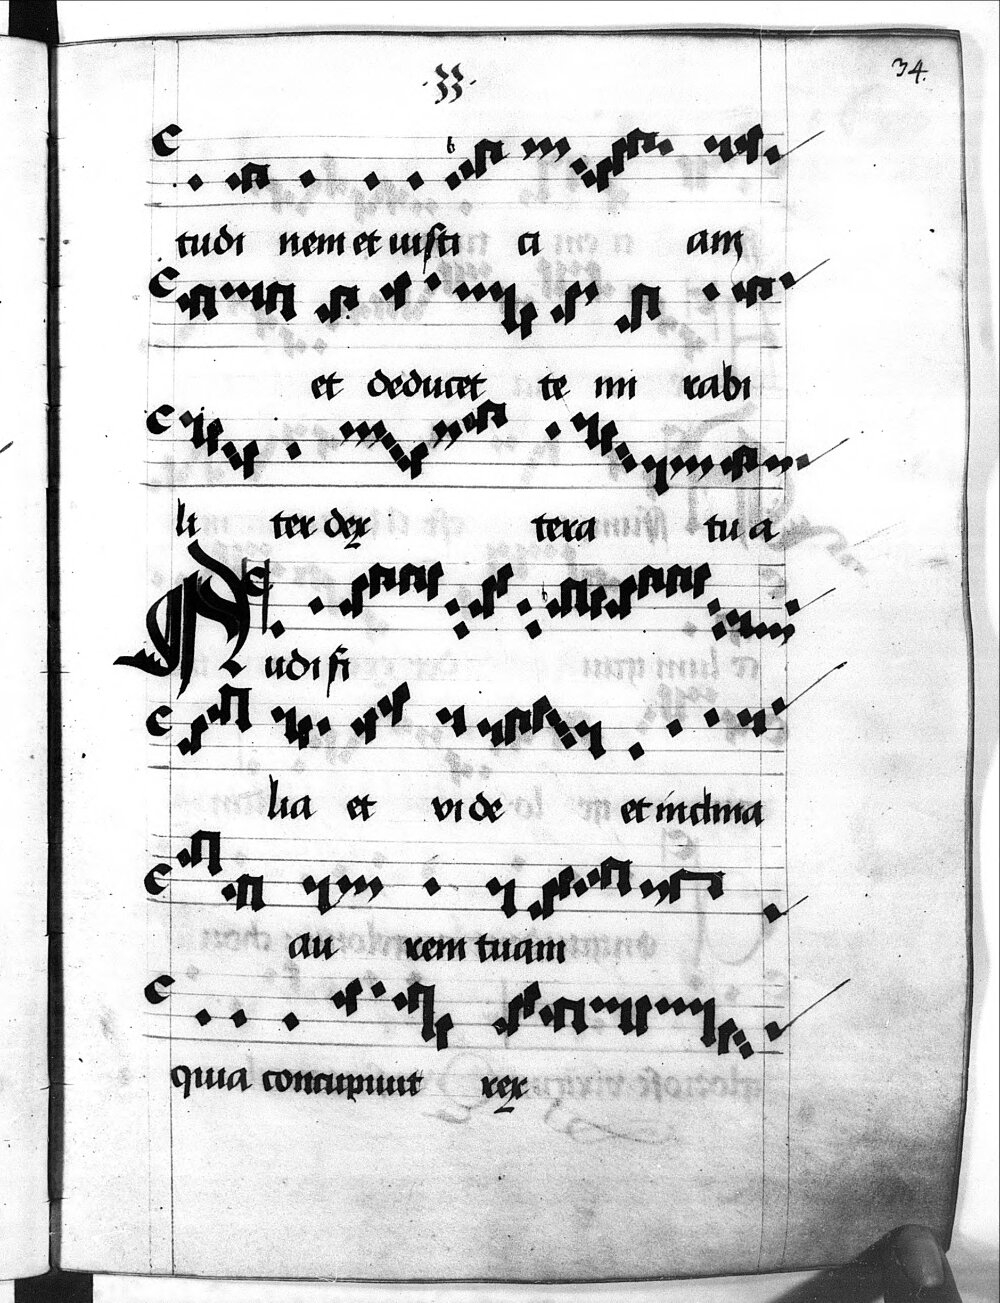 ·33· 34.
tudi nem et iusti ci am
et deducet te mi rabi
li ter dex tera tu a
Audi fi
lia et vi de et inclina
au rem tuam
quia concupiuit rex